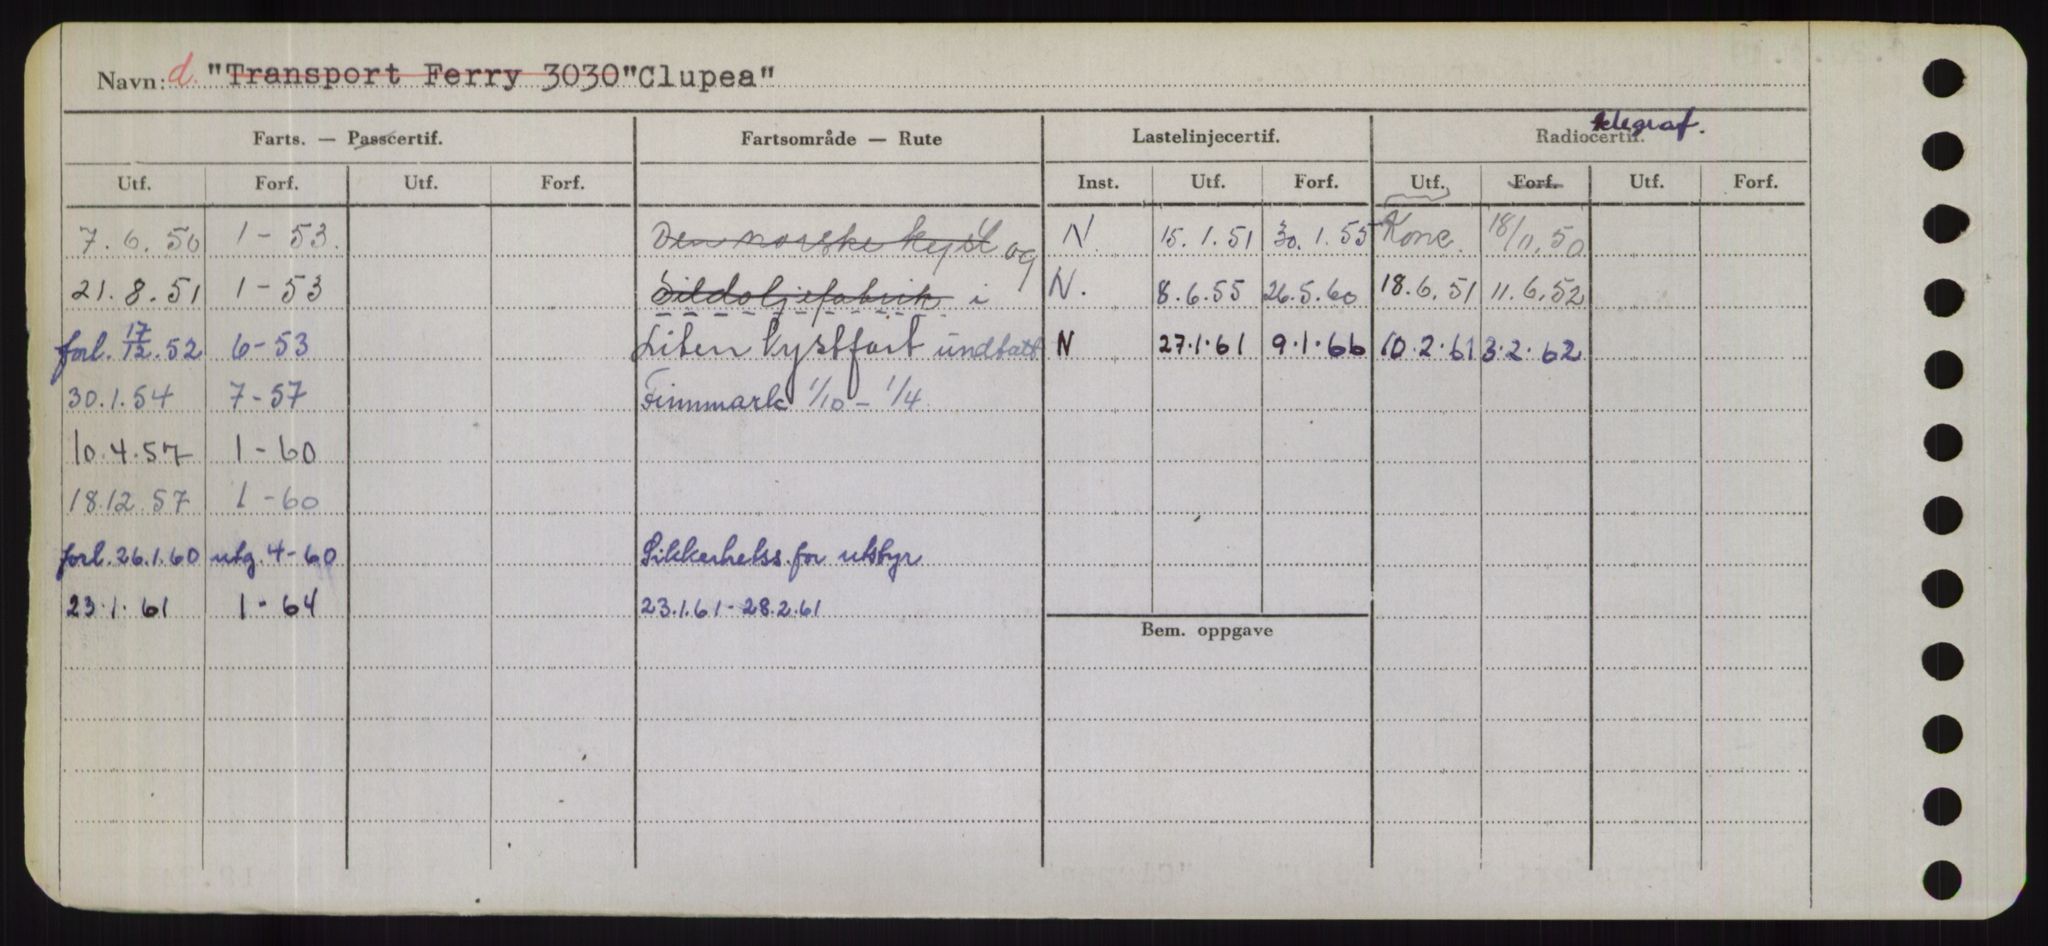 Navn: d. "Transport Ferry 3030 "Clupea"
Farts. — Passcertif. Fartsområde — Rute Lastelinjecertif. Radiocertif. telegraf.
Utf. Forf. Utf. Forf. Inst. Utf. Forf. Utf. Forf. Utf. Forf.
7.6.50 1 - 53. Den norske kyst og N. 15.1.51 30.1.55 Konc. 18/11.50
21.8.51 1 - 53 Sildoljefabrik i N. 8.6.55 26.5.60 18.6.51 11.6.52
forl. 17/12.52 6-53 Liten kystfart undtatt N 27.1.61 9.1.66 10.2.61 3.2.62
30.1.54 7-57 Finnmark 1/10 - 1/4.
10.4.57 1 - 60
18.12.57 1 - 60
forl. 26.1.60 utg. 4-60 Sikkerhetss. for utstyr
23.1.61 1 - 64 23.1.61 - 28.2.61
Bem. oppgave